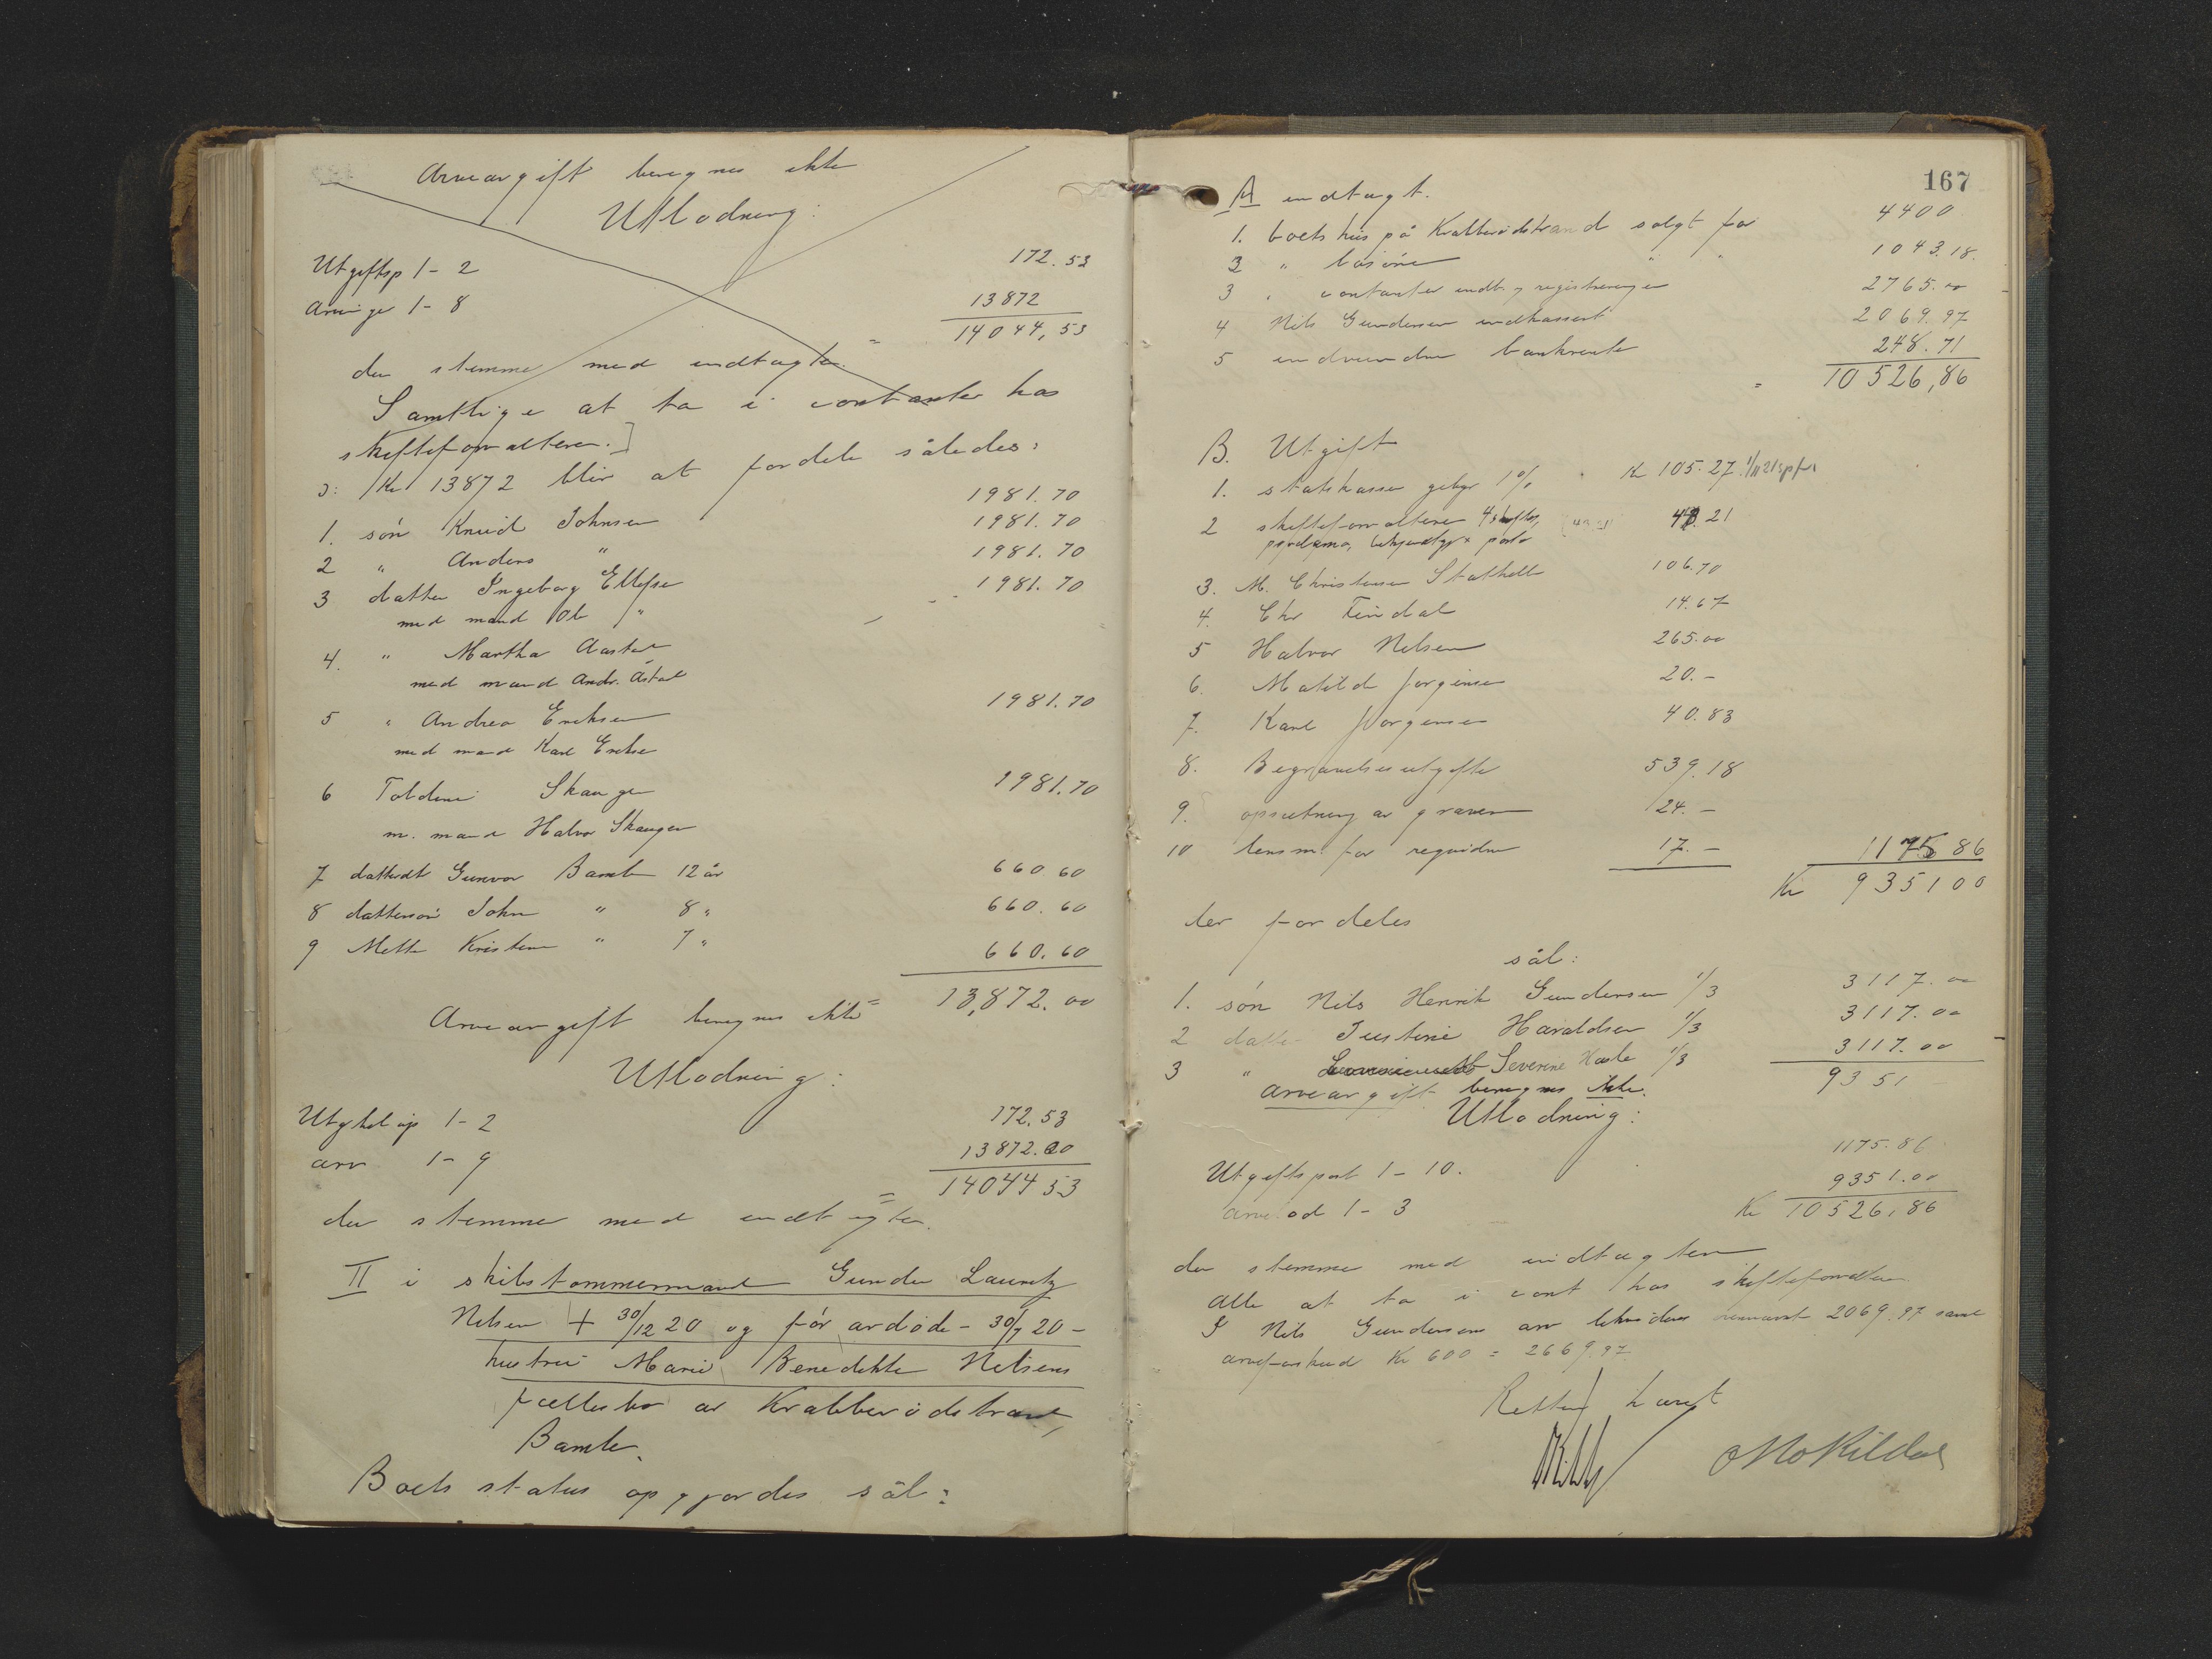 Arveavgift beregnes ikke
Utlodning:
Utgiftsp 1 - 2 172.53
Arvinger 1 - 8 13872
= 14044,53
der stemmer med indtægten.
Samtlige at ta i contanter hos
skifteforvalteren.]
ɔ: Kr 13872 blir at fordele således:
1. søn Knud Johnsen 1981.70
2 " Anders " 1981.70
3 datter Ingeborg Ellefsen 1981.70
med mand Ole "
4. " Martha Aastad 1981.70
med mand Andr. Åstad
5 " Andrea Eriksen 1981.70
med mand Karl Eriksen
6 Toldine Skaugen 1981.70
m. mand Halvor Skaugen
7 datterdt Gunvor Bamble 12 år 660 60
8 dattersøn John " 8 " 660.60
9 Mette Kristine " 7 " 660.60
= 13,872.00
Arveavgift beregnes ikke
Utlodning:
172.53
arv 1 - 9 13872.00
= 14044 53
der stemmer med indtægten.
II i skibstømmermand Gunder Lauritz
Nilsen + 30/12 20 og før avdøde - 30/7 20 -
hustru Marie Benedikte Nilsens
fællesbo av Krabberødstrand,
Bamle.
Boets status opgjordes sål:
167
A indtægt.
1. boets hus på Krabberødstrand solgt for 4400
2 " løsøre " " 1043.18.
3 " contanter indt. registreringen 2765.00
4 Nils Gundersen indkassert 2069.97
5 indvundne bankrente 248.71
= 10526,86
B. Utgift
1. statskassen gebyr 1% Kr 105.27
2 skifteforvalteren 43.21
porto
3. M. Christensen Stathelle 106.70
4. Chr Findal 14.67
5 Halvor Nilsen 265.00
6. Matilde Jørgensen 20.-
7. Karl Jørgensen 40.83
8. Begravelsesutgifter 539.18
9. opsætning av graven 24.-
10 lensm. for 17.- 1175 86
Kr 9351 00
der fordeles
sål:
1. søn Nils Henrik Gundersen 1/3 3117.00
2 datter Justine Haraldsen 1/3 3117.00
3 " Severine 1/3 3117.00
9351
arveavgift beregnes ikke.
Utlodning:
Utgiftspost 1 - 10. 1175.86
arvelod 1 - 3 9351.00
Kr 10526,86
der stemmer med indtægten
alle at ta i cont hos skifteforvalteren
I Nils Gundersens arv 2069.97 samt
arveforskud Kr 600 = 2669.97
Retten hævet